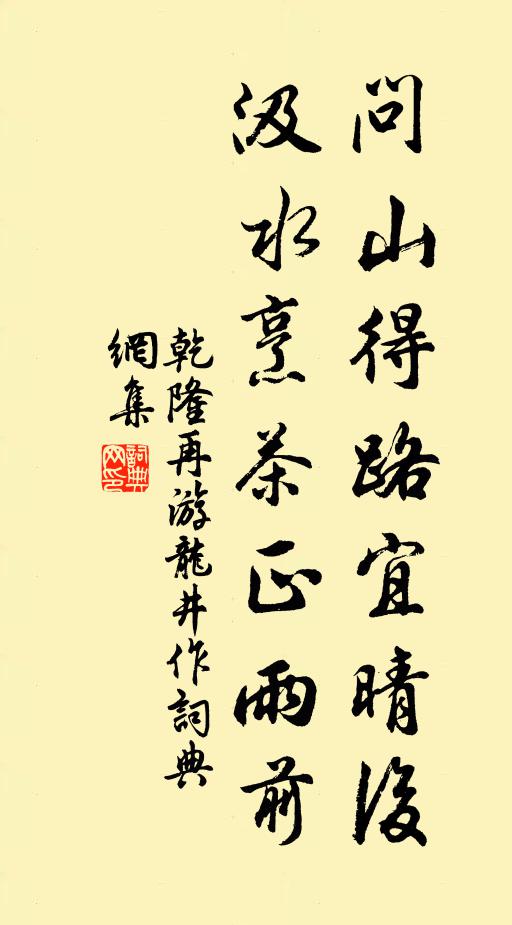 問山得路宜晴後
汲水烹茶正雨前
乾隆再游龍井作詞典
網集
詞典
网印